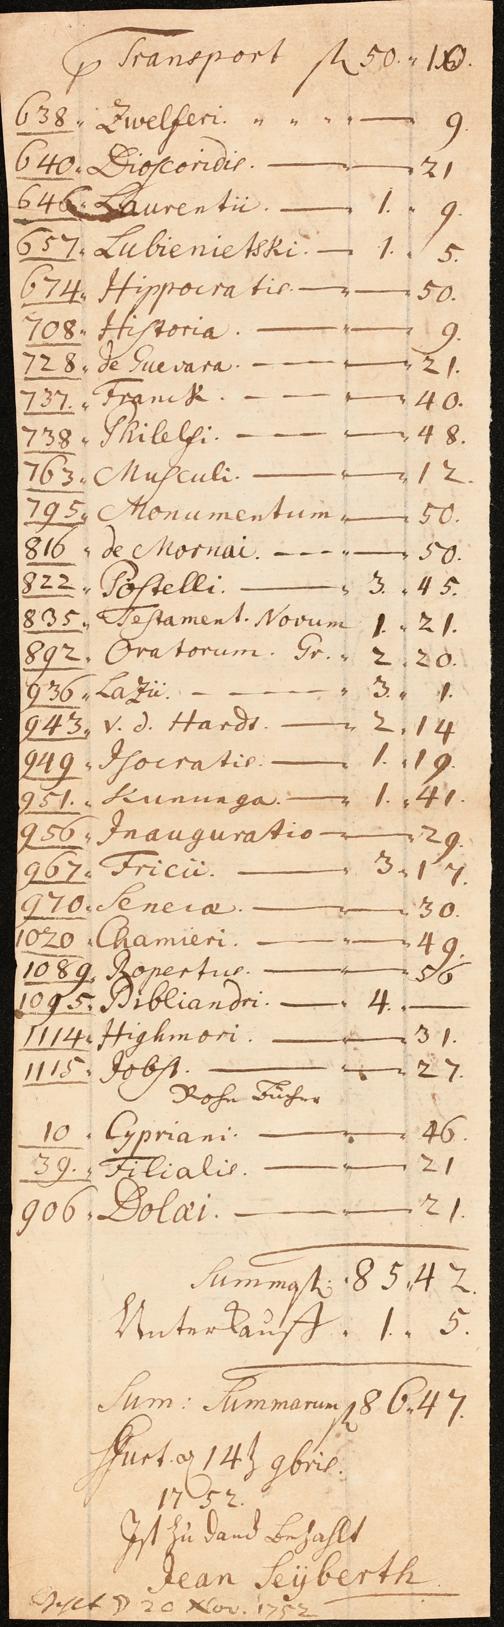 Transport fl 50. 10.
638. Zwelferi. — 9.
640. Dioscoridis. — 21
646 Laurentii. — 1. 9.
657. Lubienietski. — 1. 5.
674. Hippocratis. — 50.
708. Historia. — 9.
728. de Guevara. — 21.
737. Franck. — 40.
738 Philelfi. — 48.
763. Musculi. — 12.
795. Monumentum — 50.
816 de Mornai. — 50.
822. Postelli. — 3. 45.
835. Testament. Novum 1. 21.
892. Oratorum. Gr. 2. 20.
936. Lazii. — 3. 1.
943. v. d. Hardt. — 2. 14
949. Isocratis. — 1. 19.
951. Kununga. — 1. 41.
956. Inauguratio — 29.
967. Fricii. — 3. 17.
970. Senecæ. — 30.
1020. Chamieri. — 49.
1089. Ropertus. — 56
1095. Bibliandri. — 4. —
1114. Highmori. — 31.
1115. Jobst. — 27.
Rohe Bücher
10. Cypriani. — 46.
39. Filialis. — 21
906. Dolæi. — 21.
Summa fl. 85. 42.
Unterkauff. 1. 5.
Sum: Summarum fl 86. 47.
ffurt. 14 9bris.
1752.
Ist zu danck bezahlt
Jean Seÿberth
20 Nov. 1752